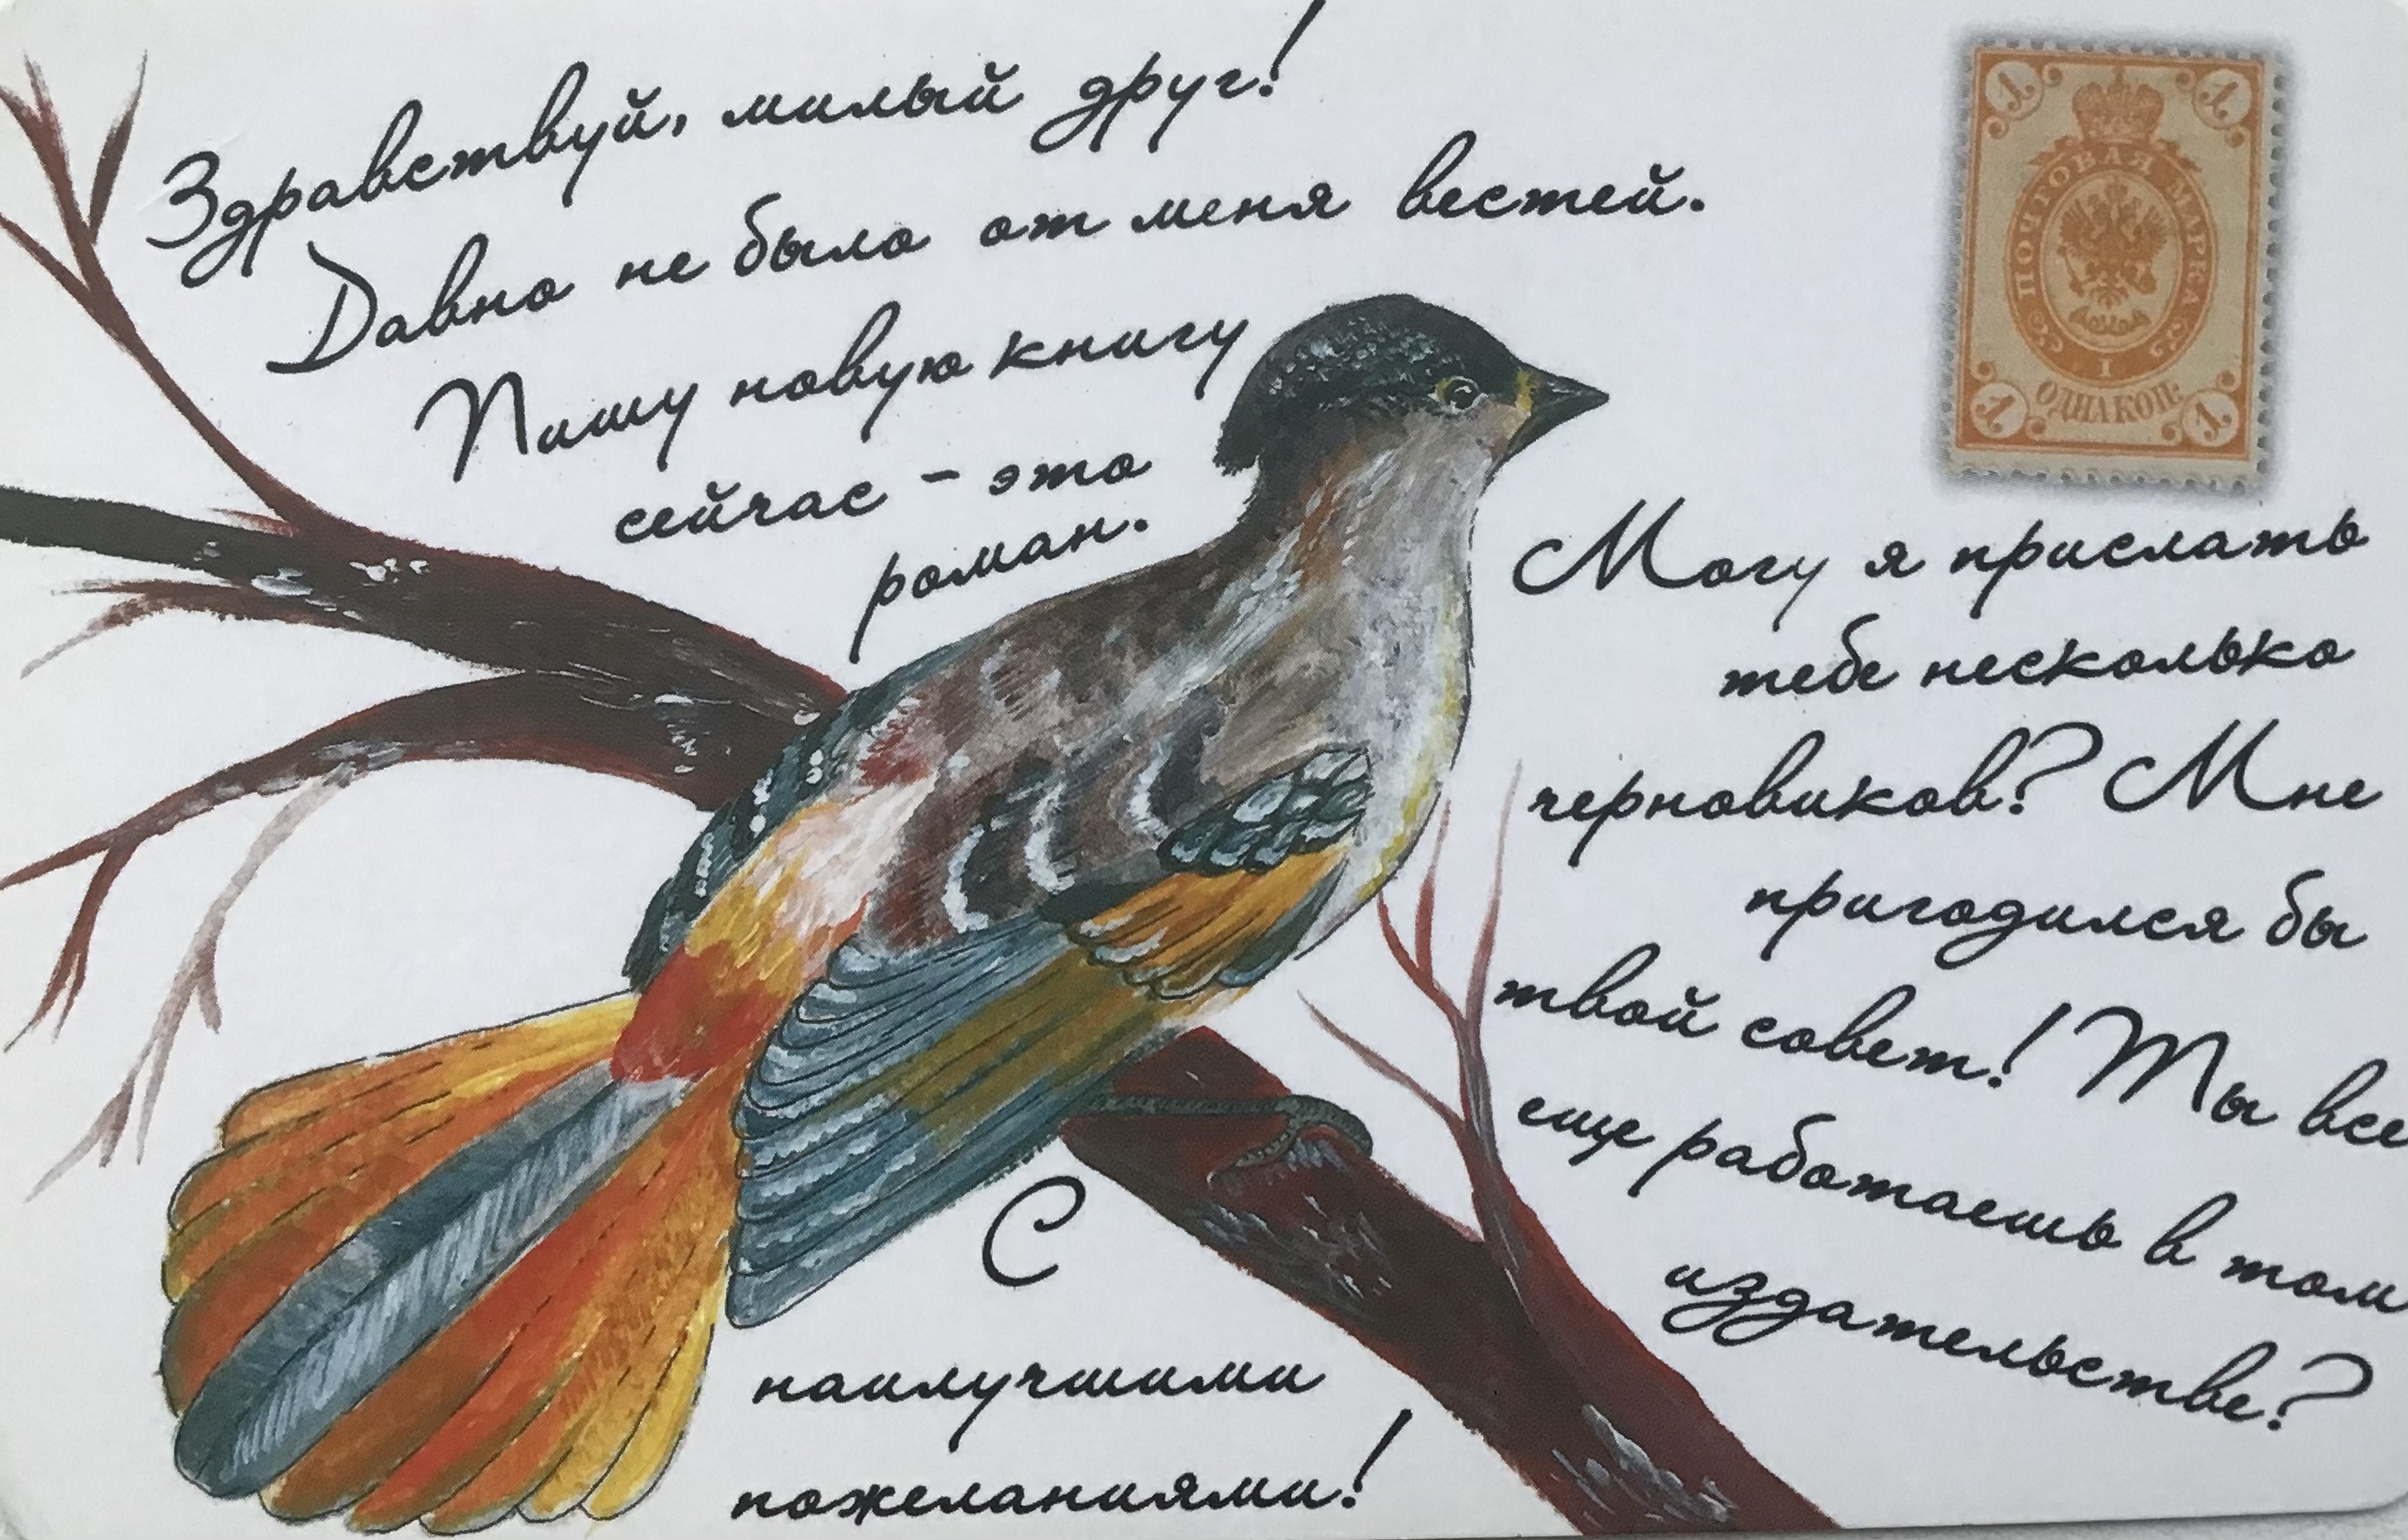 Здравствуй, милый друг!
Давно не было от меня вестей.
Пишу новую книгу
сейчас - это
роман.
Могу я прислать
тебе несколько
черновиков? Мне
пригодился бы
твой совет! Ты все
еще работаешь в том
издательстве?
С
наилучшими
пожеланиями!
1 1
ПОЧТОВАЯ МАРКА
1
ОДНА КОП.
1 1